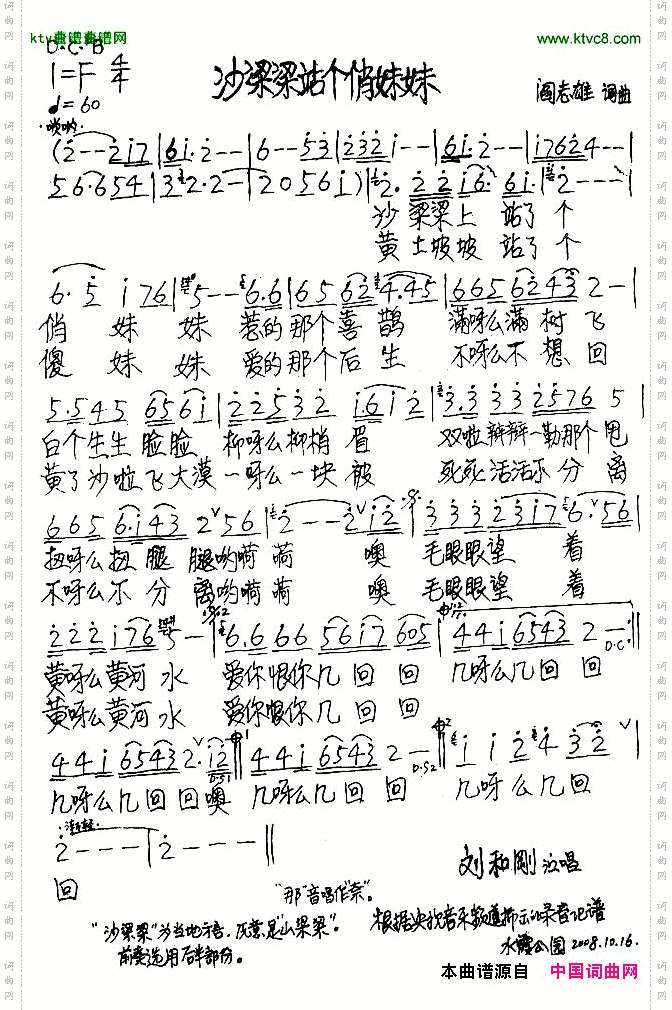 kty曲谱曲谱网
www.ktvc8.com
D·C·B
1=F 4/4
♩=60
沙梁梁站个俏妹妹
阎志雄 词曲
·唢呐·
(2--217|61·2--|6--53|2321--|61·2--|17624--|
56·654|32·2·2-|20561)|2·2216·61·|2---|
沙梁梁上 站了个
黄土坡坡 站了个
6·5 1 76|5--6·6|65 62 4·45|665 6243 2-|
俏 妹 妹 惹的那个喜鹊 满呀么满树飞
傻 妹 妹 爱的那个后生 不呀么不想回
5·545 6561|22532 1612|3·333 2576 5|
白个生生脸脸 柳呀么柳梢眉 双啦辫辫一勒那个甩
黄了沙啦飞大漠 一呀么一块被 死死活活不分离
665 6·143 2 56|2--2 12|333 2317|6·56|
扭呀么扭腿腿哟嗬嗬 噢 毛眼眼望着
不呀么不分离哟嗬嗬 噢 毛眼眼望着
222176 5-|6·6 66 5617 605|441 6543 2-|
D.C.
黄呀么黄河水 爱你恨你几回回 几呀么几回回
黄呀么黄河水 爱你恨你几回回
441 6543 2·12|441 6543 2-|1 1 2 4 32|
D.S1
D.S2
几呀么几回回噢 几呀么几回回 几呀么几回
2---|2---||
回
刘和刚 演唱
"那"音唱作"奈"。
"沙梁梁"为当地方言, 原意是"山梁梁"。
根据央视音乐频道播放的录音记谱
前奏选用后半部份。
水霞公园 2008.10.16.
本曲谱源自 中国词曲网
词曲网